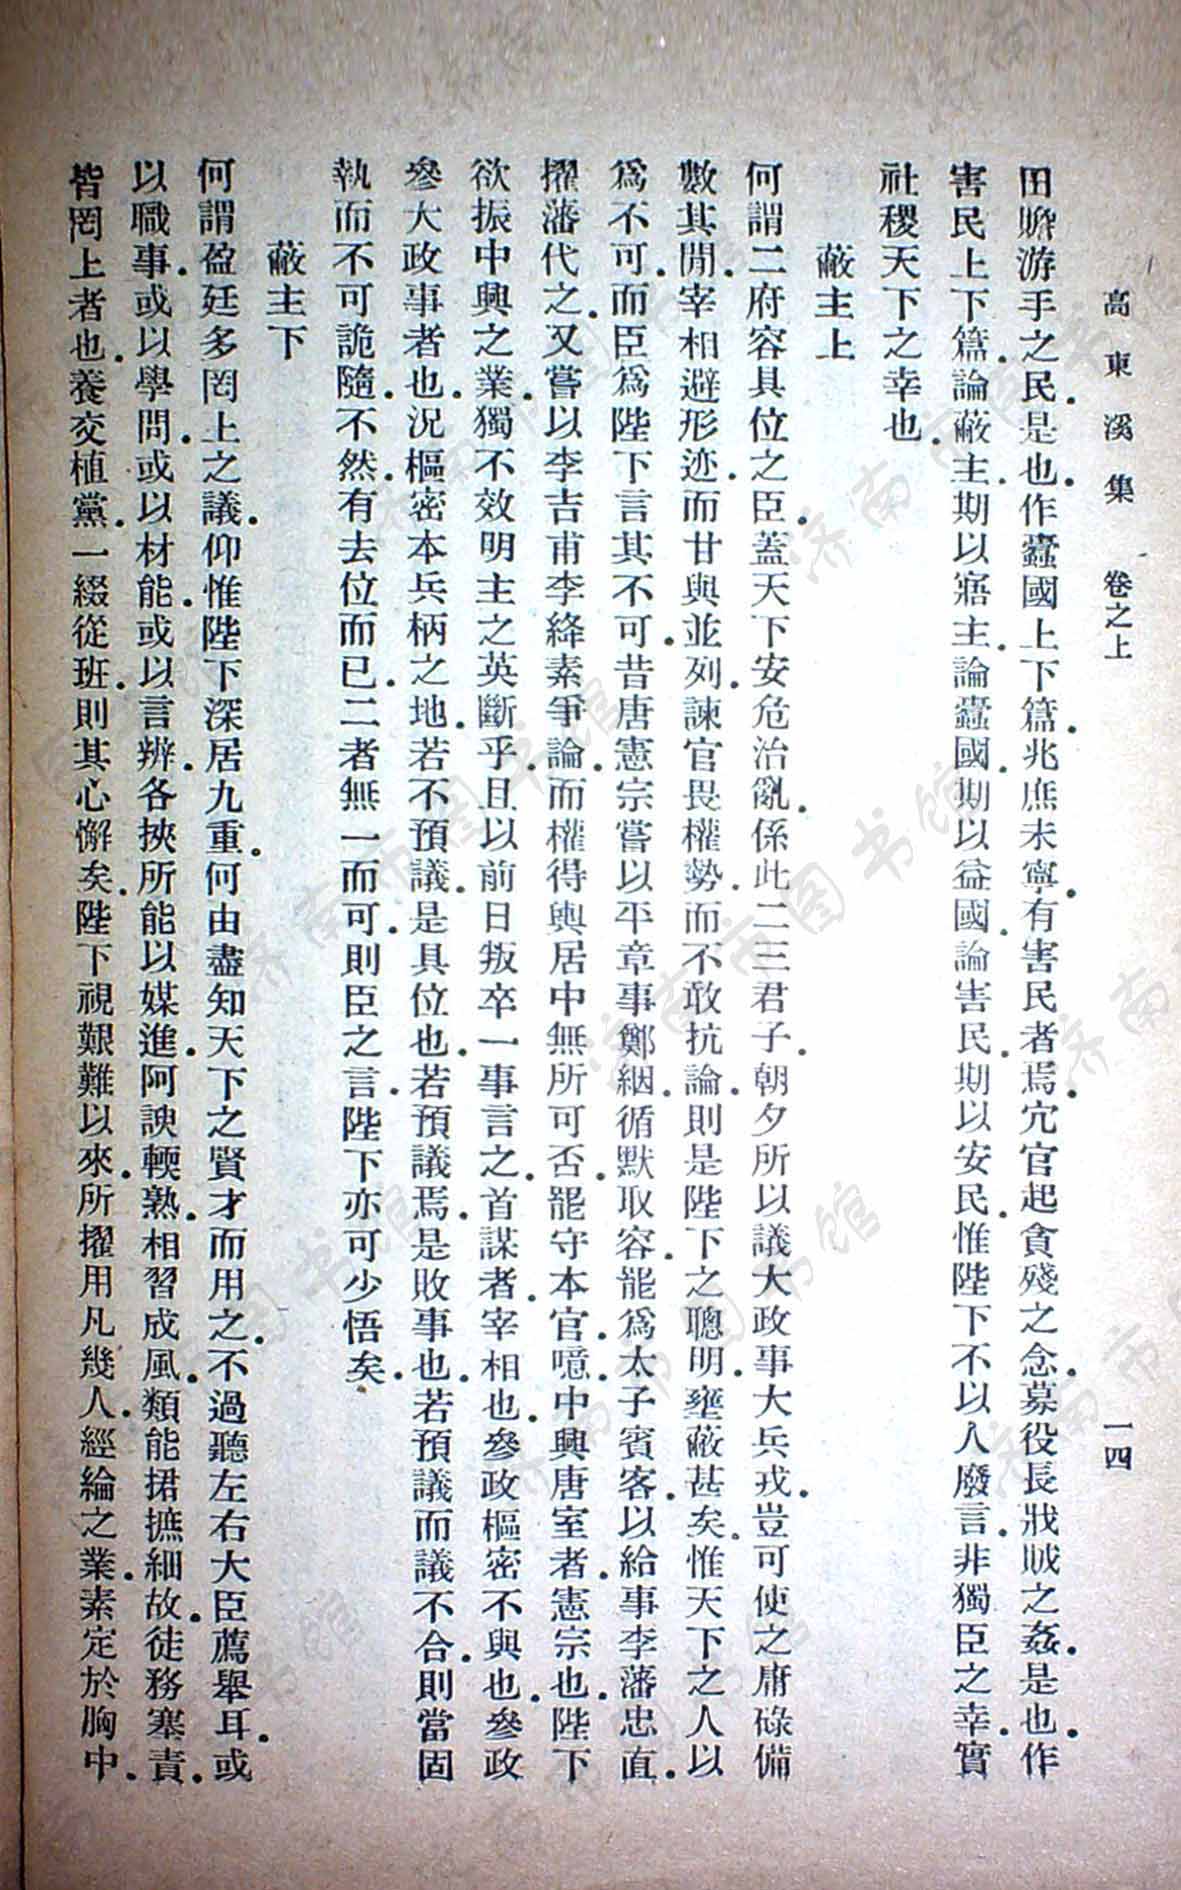 高東溪集　卷之上　一四
田贍游手之民．是也．作蠹國上下篇．兆庶未寧．有害民者焉．宂官起貪殘之念．募役長戕賊之姦．是也．作
害民上下篇．論蔽主．期以寤主．論蠹國．期以益國．論害民．期以安民．惟陛下不以人廢言．非獨臣之幸．實
社稷天下之幸也．
蔽主上
何謂二府容具位之臣．蓋天下安危治亂．係此二三君子．朝夕所以議大政事大兵戎．豈可使之庸碌備
數其閒．宰相避形迹．而甘與並列．諫官畏權勢．而不敢抗論．則是陛下之聰明．壅蔽甚矣．惟天下之人以
爲不可．而臣爲陛下言其不可．昔唐憲宗嘗以平章事鄭絪．循默取容．罷爲太子賓客．以給事李藩忠直．
擢藩代之．又嘗以李吉甫李絳素爭論．而權得輿居中無所可否．罷守本官．噫．中興唐室者．憲宗也．陛下
欲振中興之業．獨不效明主之英斷乎．且以前日叛卒一事言之．首謀者．宰相也．參政樞密不與也．參政
參大政事者也．況樞密本兵柄之地．若不預議．是具位也．若預議焉．是敗事也．若預議而議不合．則當固
執而不可詭隨．不然．有去位而已．二者無一而可．則臣之言．陛下亦可少悟矣．
蔽主下
何謂盈廷多罔上之議．仰惟陛下深居九重．何由盡知天下之賢才而用之．不過聽左右大臣薦舉耳．或
以職事．或以學問．或以材能．或以言辨．各挾所能以媒進．阿諛輭熟．相習成風．類能捃摭細故．徒務塞責．
皆罔上者也．養交植黨．一綴從班．則其心懈矣．陛下視艱難以來．所擢用凡幾人．經綸之業．素定於胸中．